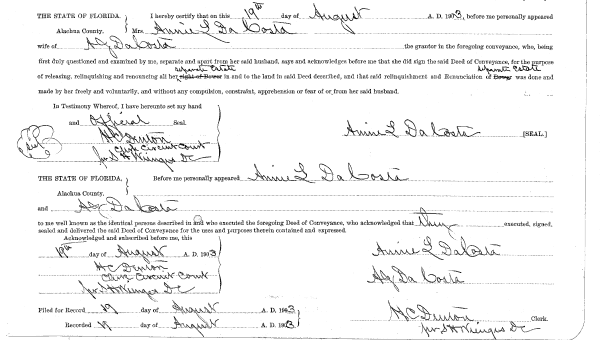 THE STATE OF FLORIDA, I hereby certify that on this 19th day of August A. D. 1903, before me personally appeared
Alachua County. Mrs Annie L Da Costa
wife of A J Da Costa the grantor in the foregoing conveyance, who, being
first duly questioned and examined by me, separate and apart from her said husband, says and acknowledges before me that she did sign the said Deed of Conveyance, for the purpose
separate Estate separate Estate
of releasing, relinquishing and renouncing all her right of Dower in and to the land in said Deed described, and that said relinquishment and Renunciation of Dower was done and
made by her freely and voluntarily, and without any compulsion, constraint, apprehension or fear of or from her said husband.
In Testimony Whereof, I have hereunto set my hand
and Official Seal.
Annie L Da Costa [SEAL.]
H C Denton
Clerk Circuit Court
per S H Wienges DC
THE STATE OF FLORIDA, Before me personally appeared Annie L Da Costa
Alachua County.
and A J Da Costa
to me well known as the identical persons described in and who executed the foregoing Deed of Conveyance, who acknowledged that they executed, signed,
sealed and delivered the said Deed of Conveyance for the uses and purposes therein contained and expressed.
Acknowledged and subscribed before me, this
19th day of August A. D. 1903 Annie L DaCosta
H C Denton
Clerk Circuit Court A J Da Costa
per S H Wienges DC
Filed for Record 19 day of August A. D. 1903 H C Denton Clerk.
Recorded 19 day of August A. D. 1903 per S H Wienges DC